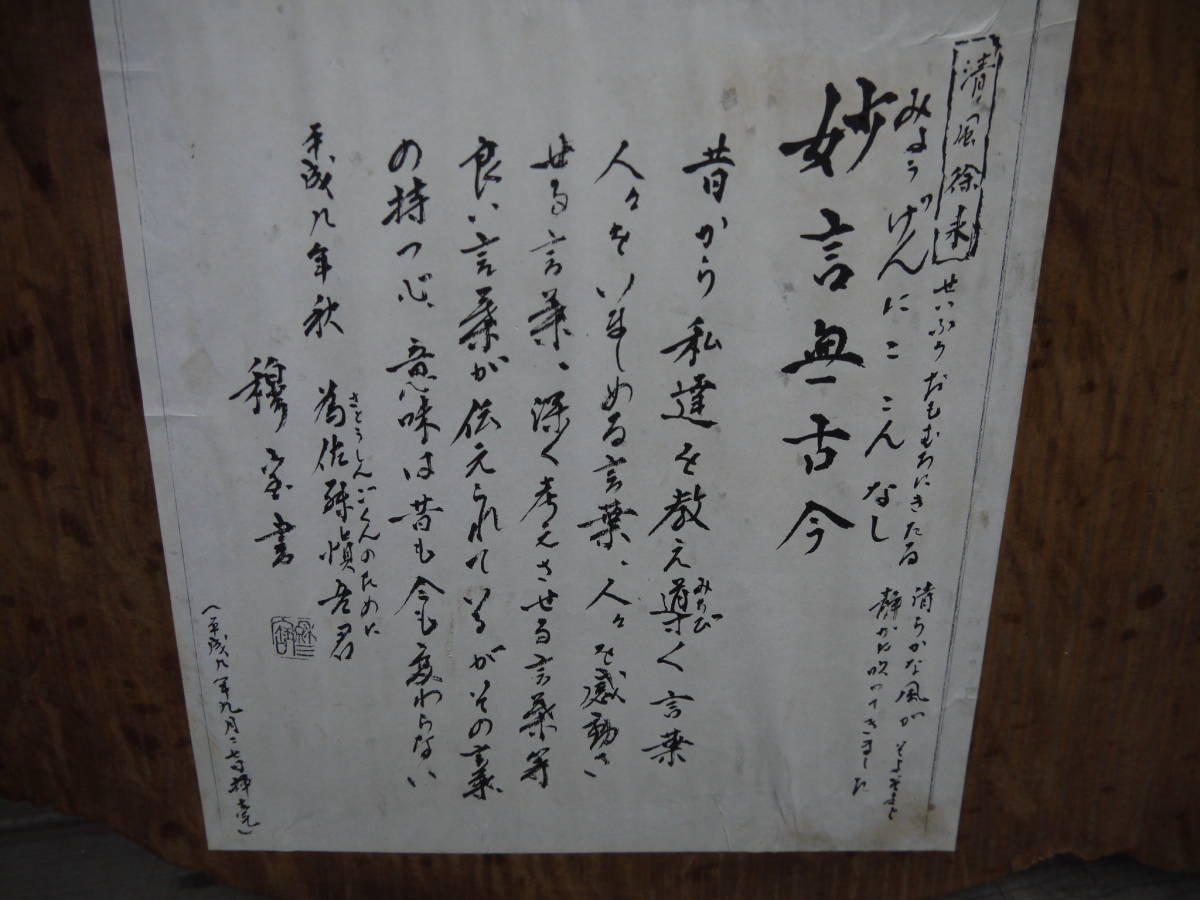 清風徐来
せいふうおもむろにきたる
清らかな風がそよそよと
静かに吹いてきました
みょうげんにここんなし
妙言無古今
昔から私達を教え導く言葉
みちび
人々をいましめる言葉、人々を感動さ
せる言葉、深く考えさせる言葉等
良い言葉が伝えられているがその言葉
の持つ心、意味は昔も今も変わらない
平成九年秋
さとうしんごくんのために
為佐藤慎吾君
書
(平成九年九月